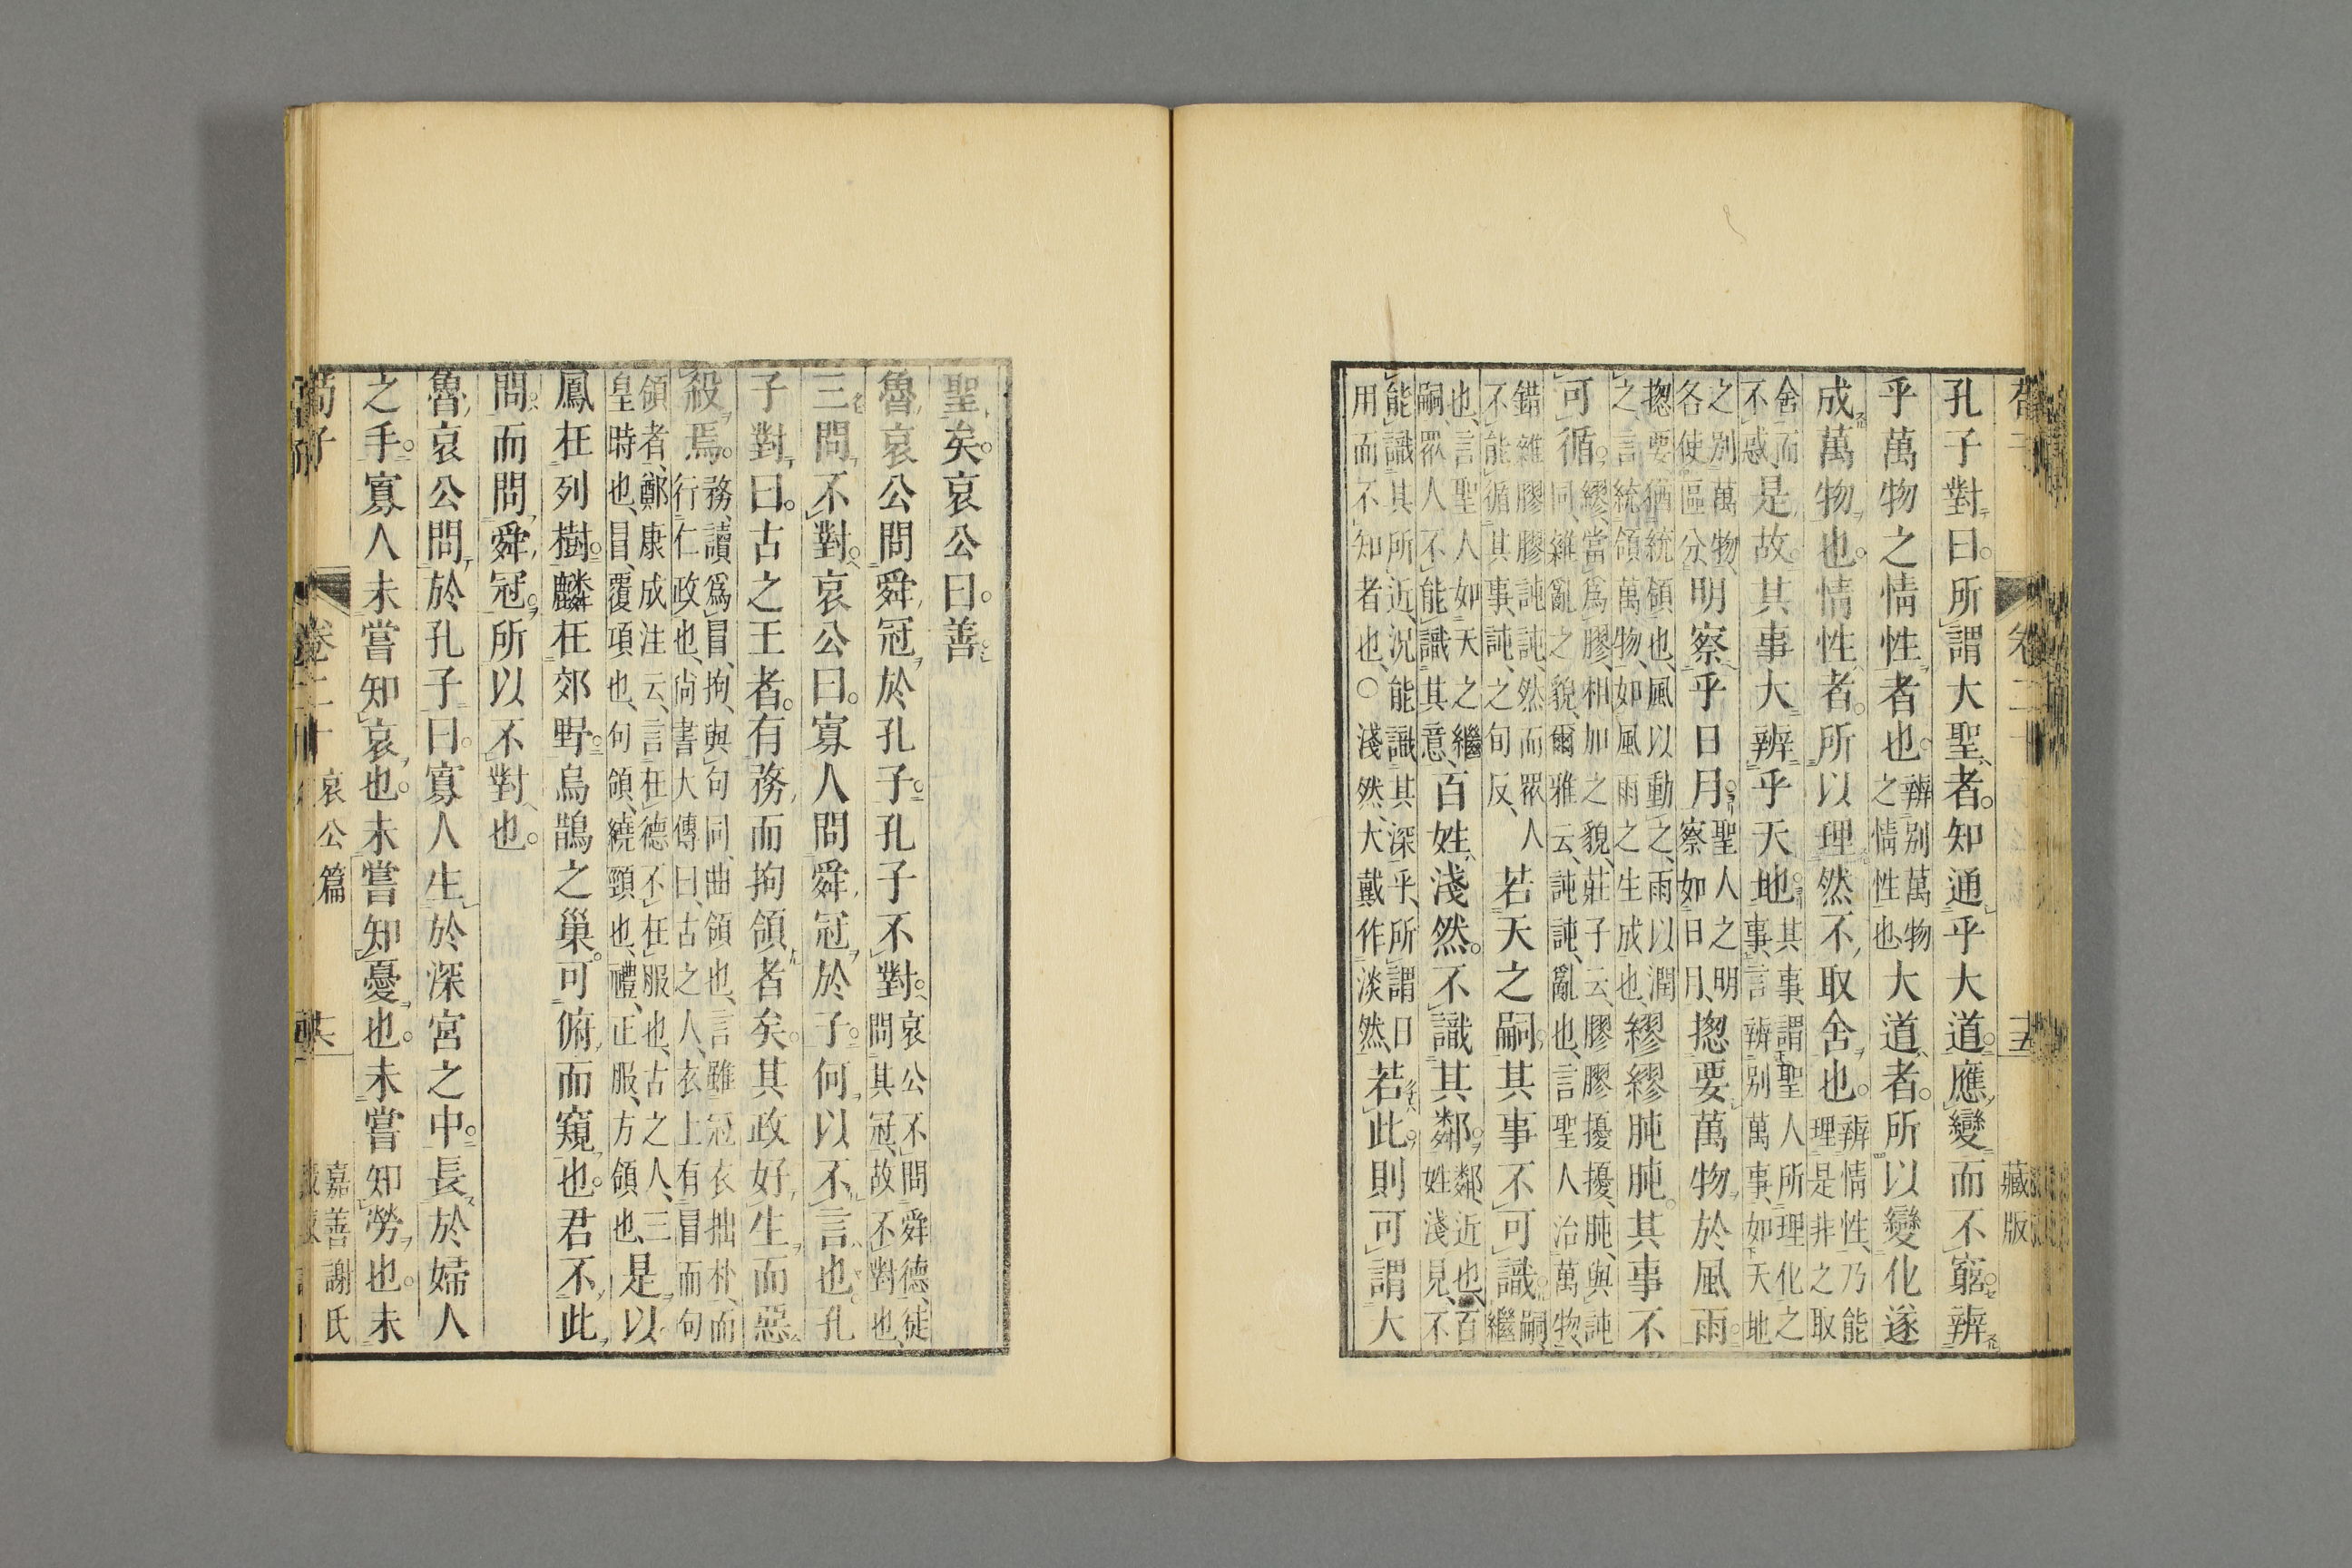 孔子對曰。所謂大聖者。知通乎大道。應變而不窮。辨
乎萬物之情性者也。辨别萬物之情性也大道者。所以變化遂
成萬物也。情性者。所以理然不取舍也。辨情性、乃能理是非之取
舍而不惑、是故其事大辨乎天地。其事、謂聖人所理化之事、言辨別萬事、如天地
之別萬物、各使區分、明察乎日月。聖人之明察如日月、摠要萬物於風雨。
摠要、猶統領也、風以動之、雨以潤之、言統領萬物、如風雨之生成也、繆繆肫肫。其事不
可循。繆、當爲膠、相加之貌、莊子云、膠膠擾擾、肫、與訰同、雜亂之貌、爾雅云、訰訰、亂也、言聖人治萬物、
錯雜膠膠訰訰、然而眾人不能循其事、訰、之旬反、若天之嗣。其事不可識。嗣、繼
也、言聖人如天之繼嗣、眾人不能識其意、百姓淺然。不識其鄰。鄰、近也、百姓淺見、不
能識其所近、況能識其深乎、所謂日用而不知者也、○淺然、大戴作淡然、若此。則可謂大
卷二十
十五
藏版
聖矣。哀公曰。善。
魯哀公問舜冠於孔子。孔子不對。哀公不問舜德、徒問其冠、故不對也、
三問。不對。哀公曰。寡人問舜冠於子。何以不言也。孔
子對曰。古之王者。有務而拘領者矣。其政好生而惡
殺焉。務、讀爲冒、拘、與句同、曲領也、言雖冠衣拙朴、而行仁政也、尙書大傳曰、古之人、衣上有冒而句
領者、鄭康成注云、言在德不在服也、古之人、三皇時也、冒、覆項也、句領、繞頸也、禮、正服、方領也、是以
鳳在列樹。麟在郊野。烏鵲之巢。可俯而窺也。君不此
問。而問舜冠。所以不對也。
魯哀公問於孔子曰。寡人生於深宮之中。長於婦人
之手。寡人未嘗知哀也。未嘗知憂也。未嘗知勞也。未
荀子
卷二十
哀公篇
十六
嘉善謝氏